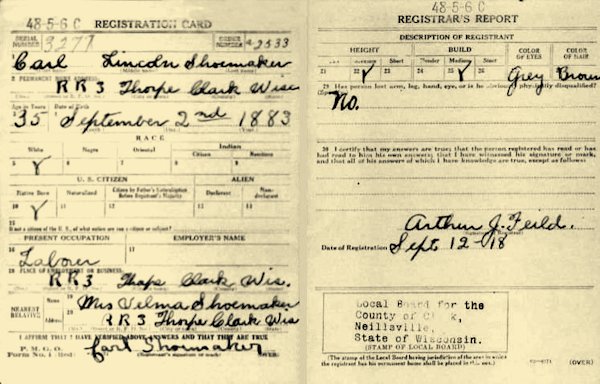 48-5-6 C REGISTRATION CARD
SERIAL NUMBER 3277 ORDER NUMBER 2533
Carl Lincoln Shoemaker
2 PERMANENT HOME ADDRESS:
RR3 Thorpe Clark Wisc
Age in Years Date of Birth
35 September 2nd 1883
RACE
White Negro Oriental Indian
Citizen Noncitizen
5 6 7 8 9
U. S. CITIZEN ALIEN
Native Born Naturalized Citizen by Father's Naturalization Before Registrant's Majority Declarant Non-declarant
10 11 12 13 14
15
If not a citizen of the U. S., of what nation are you a citizen or subject?
PRESENT OCCUPATION EMPLOYER'S NAME
16 17
Laborer
18 PLACE OF EMPLOYMENT OR BUSINESS:
RR3 Thorpe Clark Wis.
NEAREST RELATIVE
Mrs Velma Shoemaker
RR3 Thorpe Clark Wis
I AFFIRM THAT I HAVE VERIFIED ABOVE ANSWERS AND THAT THEY ARE TRUE
P. M. G. O.
Form No. 1 (Red)
Carl Shoemaker
(Registrant's signature or mark) (OVER)
48-5-6 C
REGISTRAR'S REPORT
DESCRIPTION OF REGISTRANT
HEIGHT BUILD COLOR OF EYES COLOR OF HAIR
Tall Medium Short Slender Medium Stout
21 22 23 24 25 26 27 28
Grey Brown
29 Has person lost arm, leg, hand, eye, or is he obviously physically disqualified?
No.
30 I certify that my answers are true; that the person registered has read or has
had read to him his own answers; that I have witnessed his signature or mark,
and that all of his answers of which I have knowledge are true, except as follows:
Arthur J. Feild.
Date of Registration Sept. 12-18
Local Board for the
County of Clark,
Neillsville,
State of Wisconsin.
(STAMP OF LOCAL BOARD)
(The stamp of the Local Board having jurisdiction of the area in which
the registrant has his permanent home shall be placed in this box.)
(OVER)